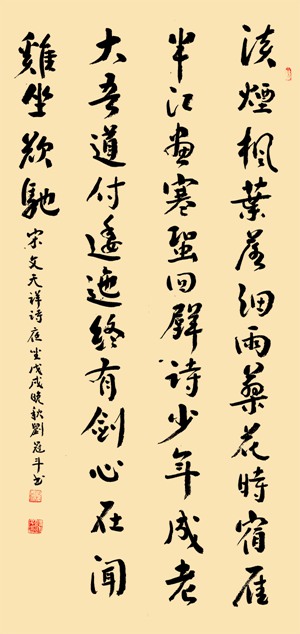 淡煙楓葉落細雨蓼花時宿雁
半江畫寒蛩四壁詩少年成老
大吾道付逶迤終有劍心在聞
雞坐欲馳 宋文天祥詩夜坐戊戌晚秋劉冠斗書